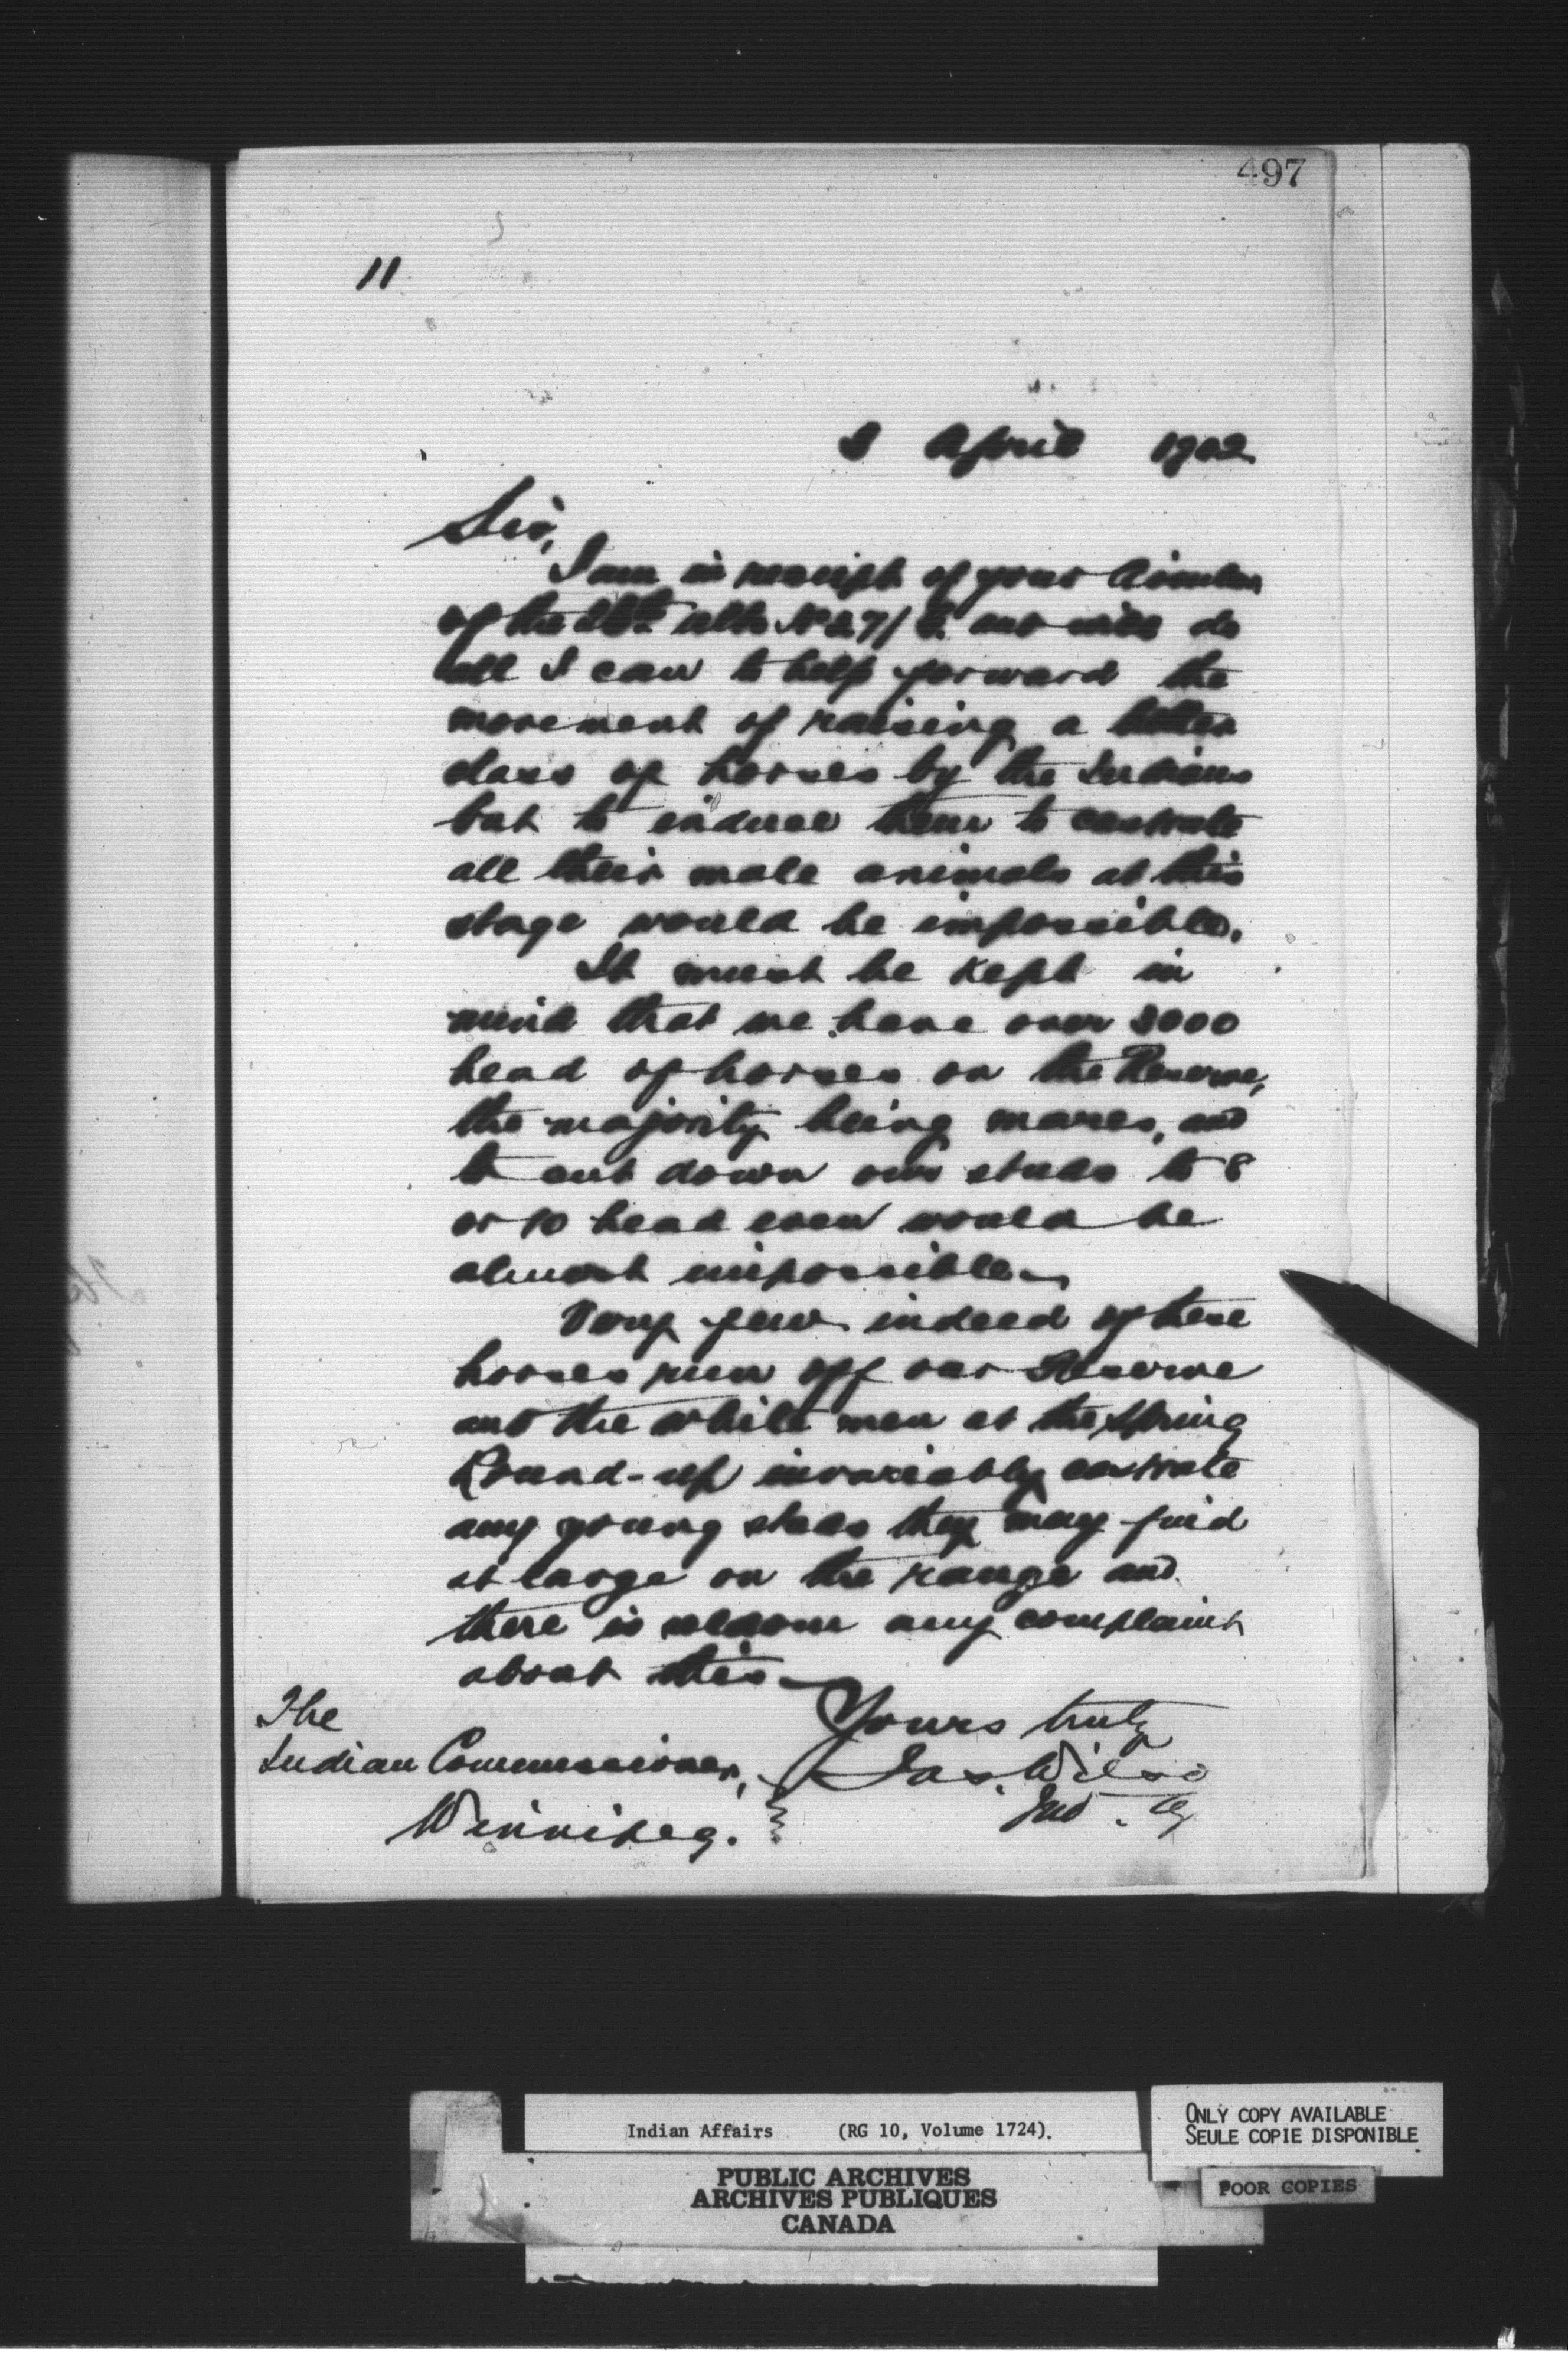 497
11
April 1902
Sir,
I am in receipt of your Circular
of the ulto No 271 and will do
all I can to help forward the
movement of raising a better
class of horses by the Indians
but to induce them to castrate
all their male animals at this
stage would be impossible.
It must be kept in
mind that we have over 3000
head of horses on the Reserve,
the majority being mares, and
to cut down our studs to 8
or 10 head even would be
almost impossible.
Very few indeed of these
horses run off our Reserve
and the white men at the Spring
Round-up invariably castrate
any young studs they may find
at large on the range and
there is seldom any complaint
about this
Yours truly
Jas. Wilson
Ind. Ag
The
Indian Commissioner,
Winnipeg.
Indian Affairs (RG 10, Volume 1724).
PUBLIC ARCHIVES
ARCHIVES PUBLIQUES
CANADA
ONLY COPY AVAILABLE
SEULE COPIE DISPONIBLE
POOR COPIES